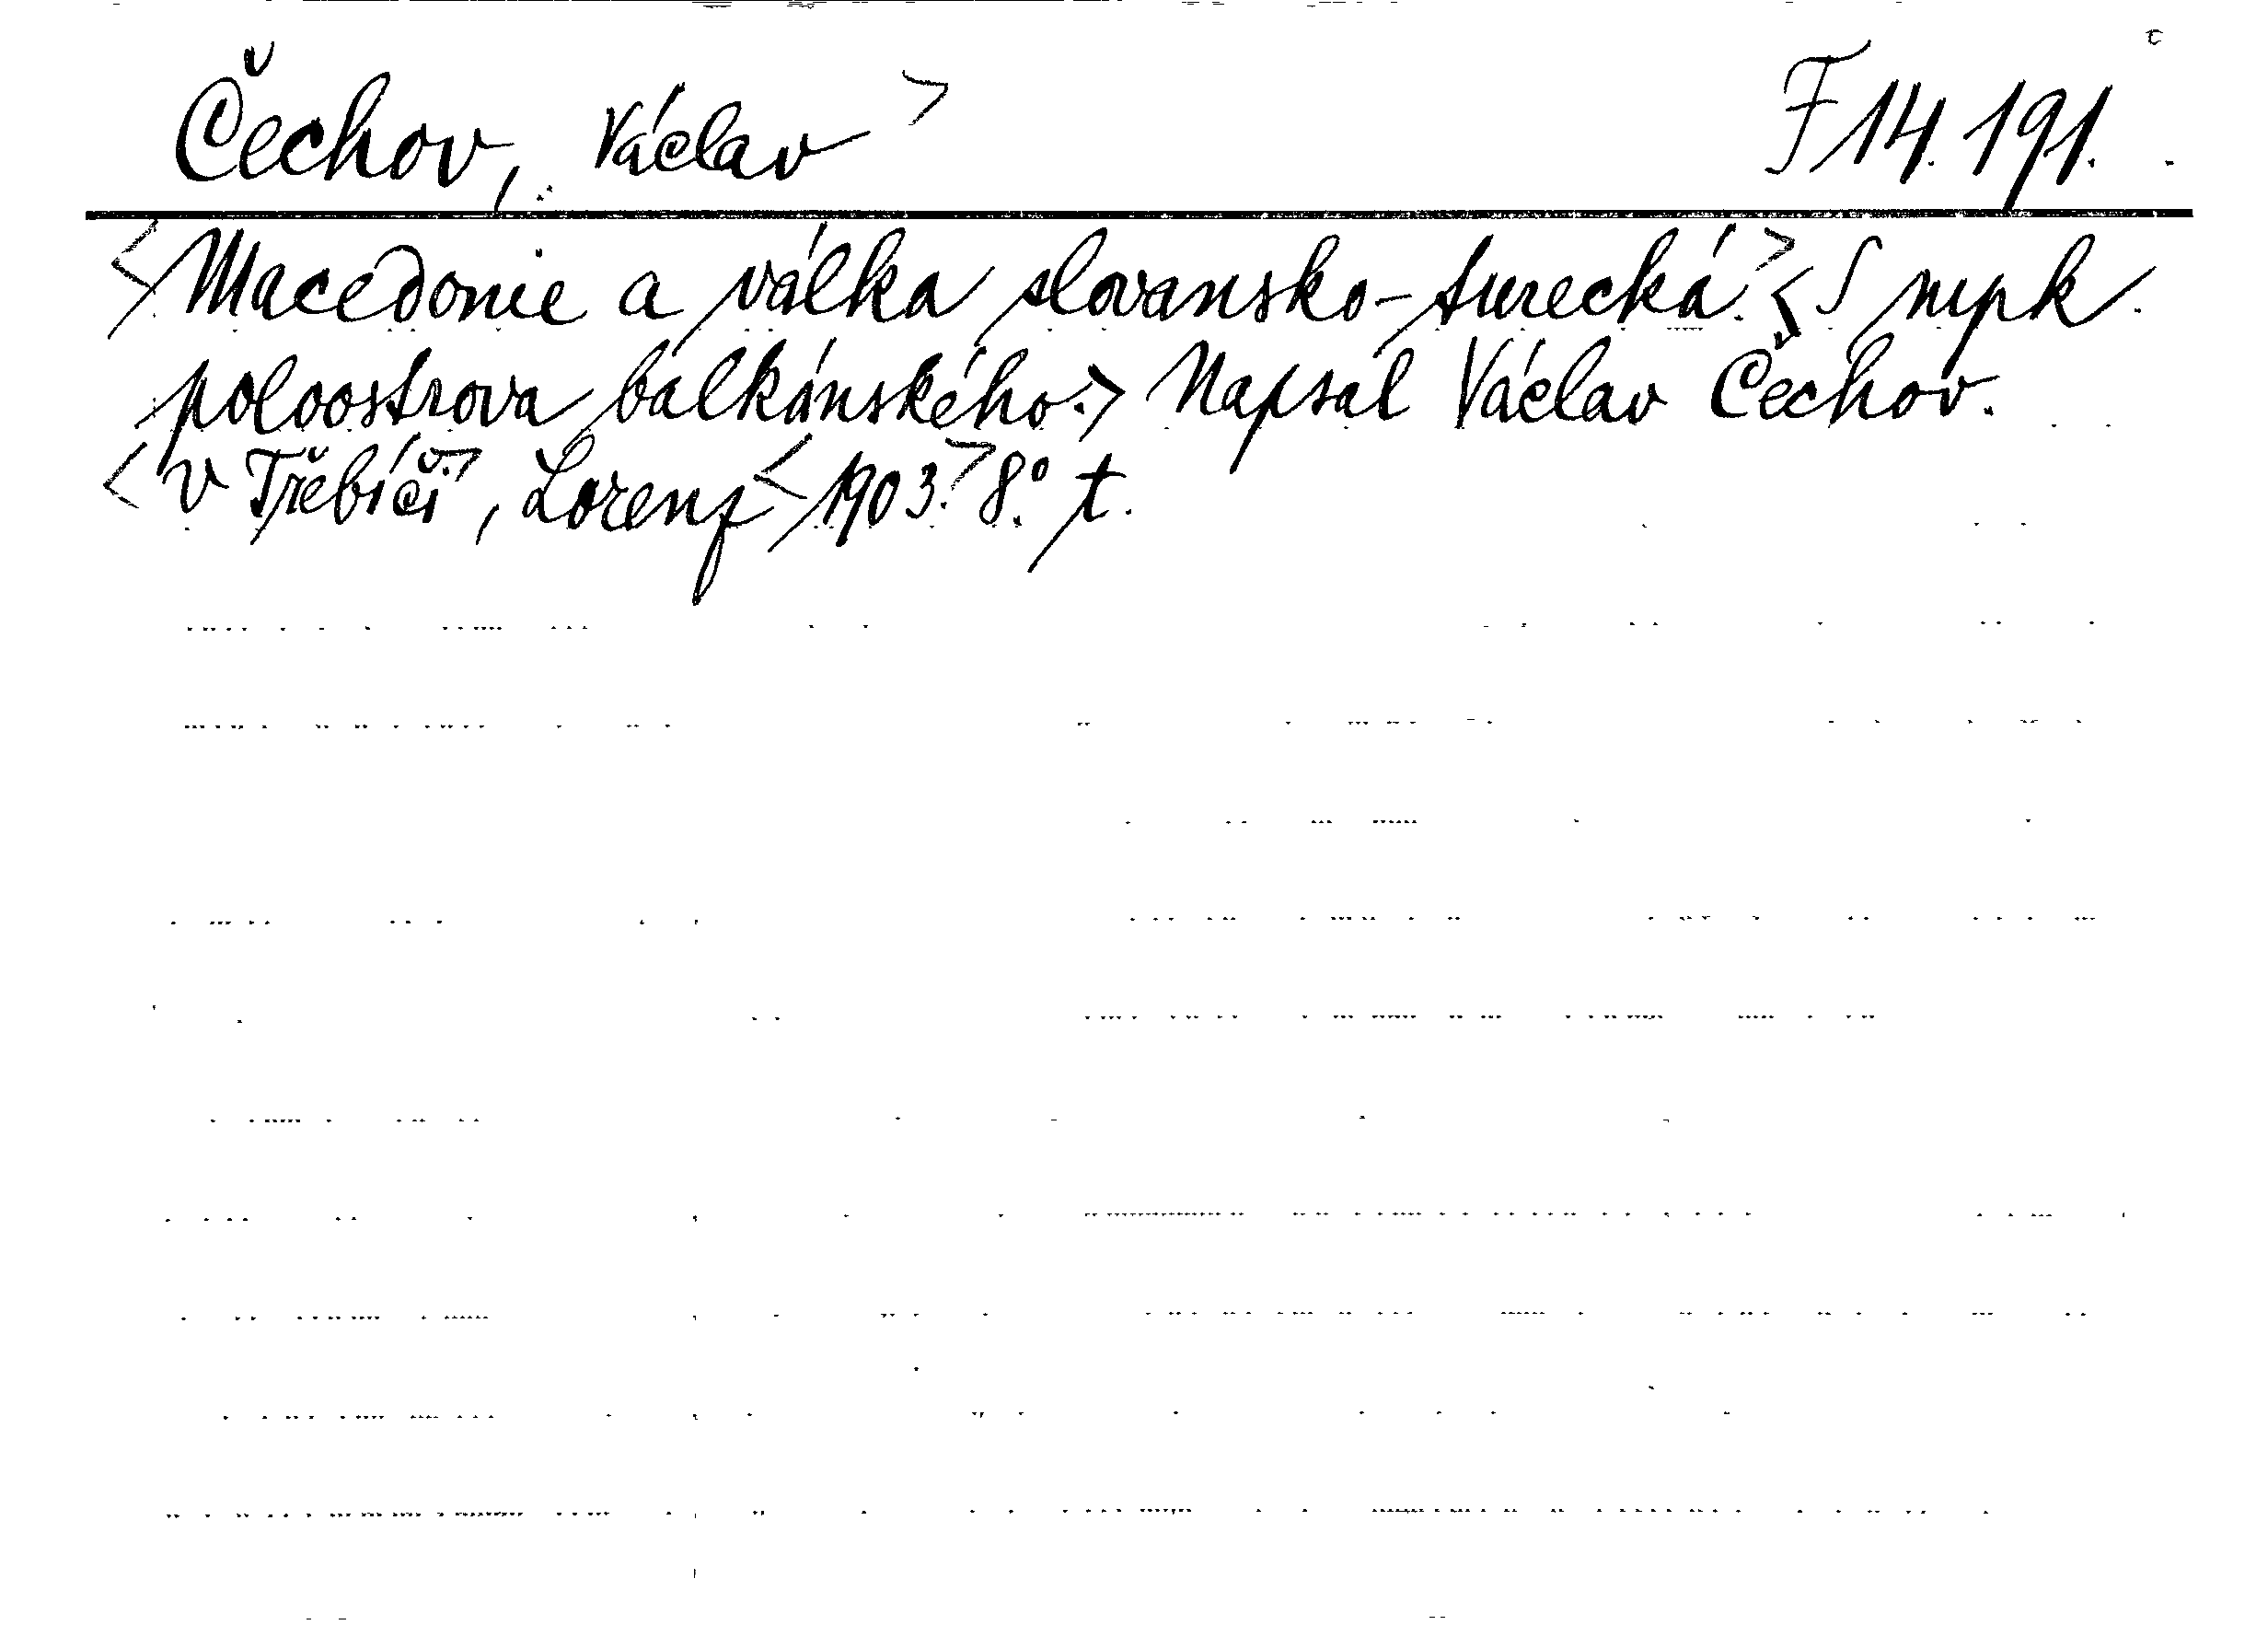 Čechov, Václav> F 14.191.
<Macedonie a válka slovansko-turecká.> <S mpk.
poloostrova balkánského.> Napsal Václav Čechov.
<V Třebíči>, Lorenz <1903.> 8°. t.